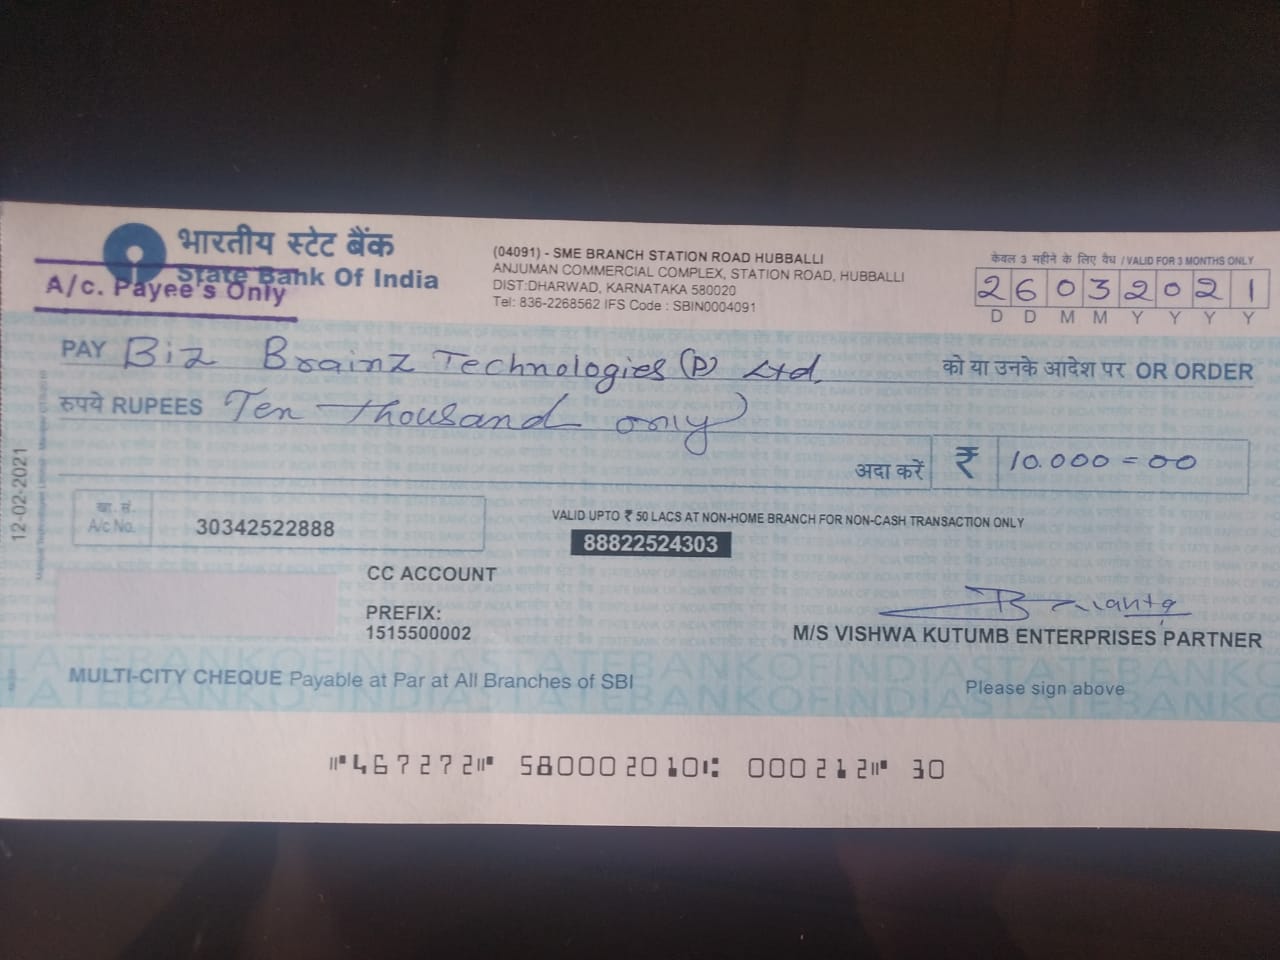 भारतीय स्टेट बैंक
State Bank Of India
A/c. Payee's Only
(04091) - SME BRANCH STATION ROAD HUBBALLI
ANJUMAN COMMERCIAL COMPLEX, STATION ROAD, HUBBALLI
DIST:DHARWAD, KARNATAKA 580020
Tel: 836-2268562 IFS Code : SBIN0004091
केवल 3 महीने के लिए वैध / VALID FOR 3 MONTHS ONLY
2 6 0 3 2 0 2 1
D D M M Y Y Y Y
PAY Biz Brainz Technologies (P) Ltd. को या उनके आदेश पर OR ORDER
रुपये RUPEES Ten thousand only
अदा करें ₹ 10.000=00
12-02-2021
खा. सं.
A/c No. 30342522888
VALID UPTO ₹ 50 LACS AT NON-HOME BRANCH FOR NON-CASH TRANSACTION ONLY
88822524303
CC ACCOUNT
PREFIX:
1515500002
M/S VISHWA KUTUMB ENTERPRISES PARTNER
MULTI-CITY CHEQUE Payable at Par at All Branches of SBI
Please sign above
⑈467272⑈ 580002010⑆ 000212⑈ 30